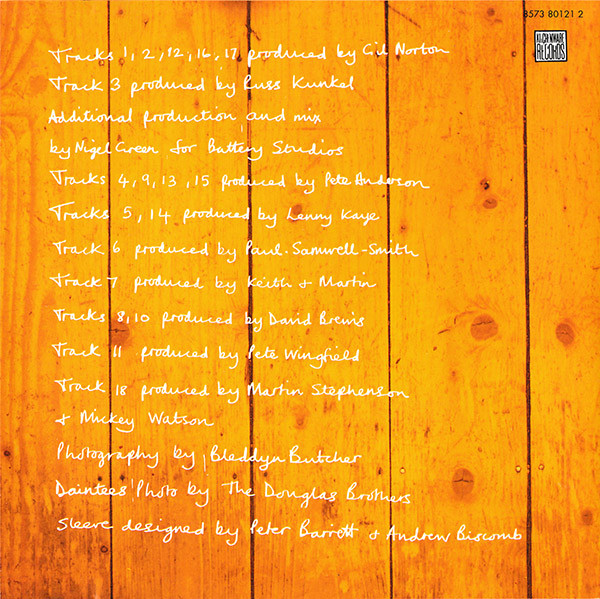 8573 80121 2
KITCHENWARE
RECORDS
Tracks 1, 2, 12, 16, 17 produced by Gil Norton
Track 3 produced by Russ Kunkel
Additional production and mix
by Nigel Green for Battery Studios
Tracks 4, 9, 13, 15 produced by Pete Anderson
Tracks 5, 14 produced by Lenny Kaye
Track 6 produced by Paul Samwell-Smith
Track 7 produced by Keith + Martin
Tracks 8, 10 produced by David Brewis
Track 11 produced by Pete Wingfield
Track 18 produced by Martin Stephenson
+ Mickey Watson
Photography by Bleddyn Butcher
Daintees' Photo by The Douglas Brothers
Sleeve designed by Peter Barrett + Andrew Biscomb